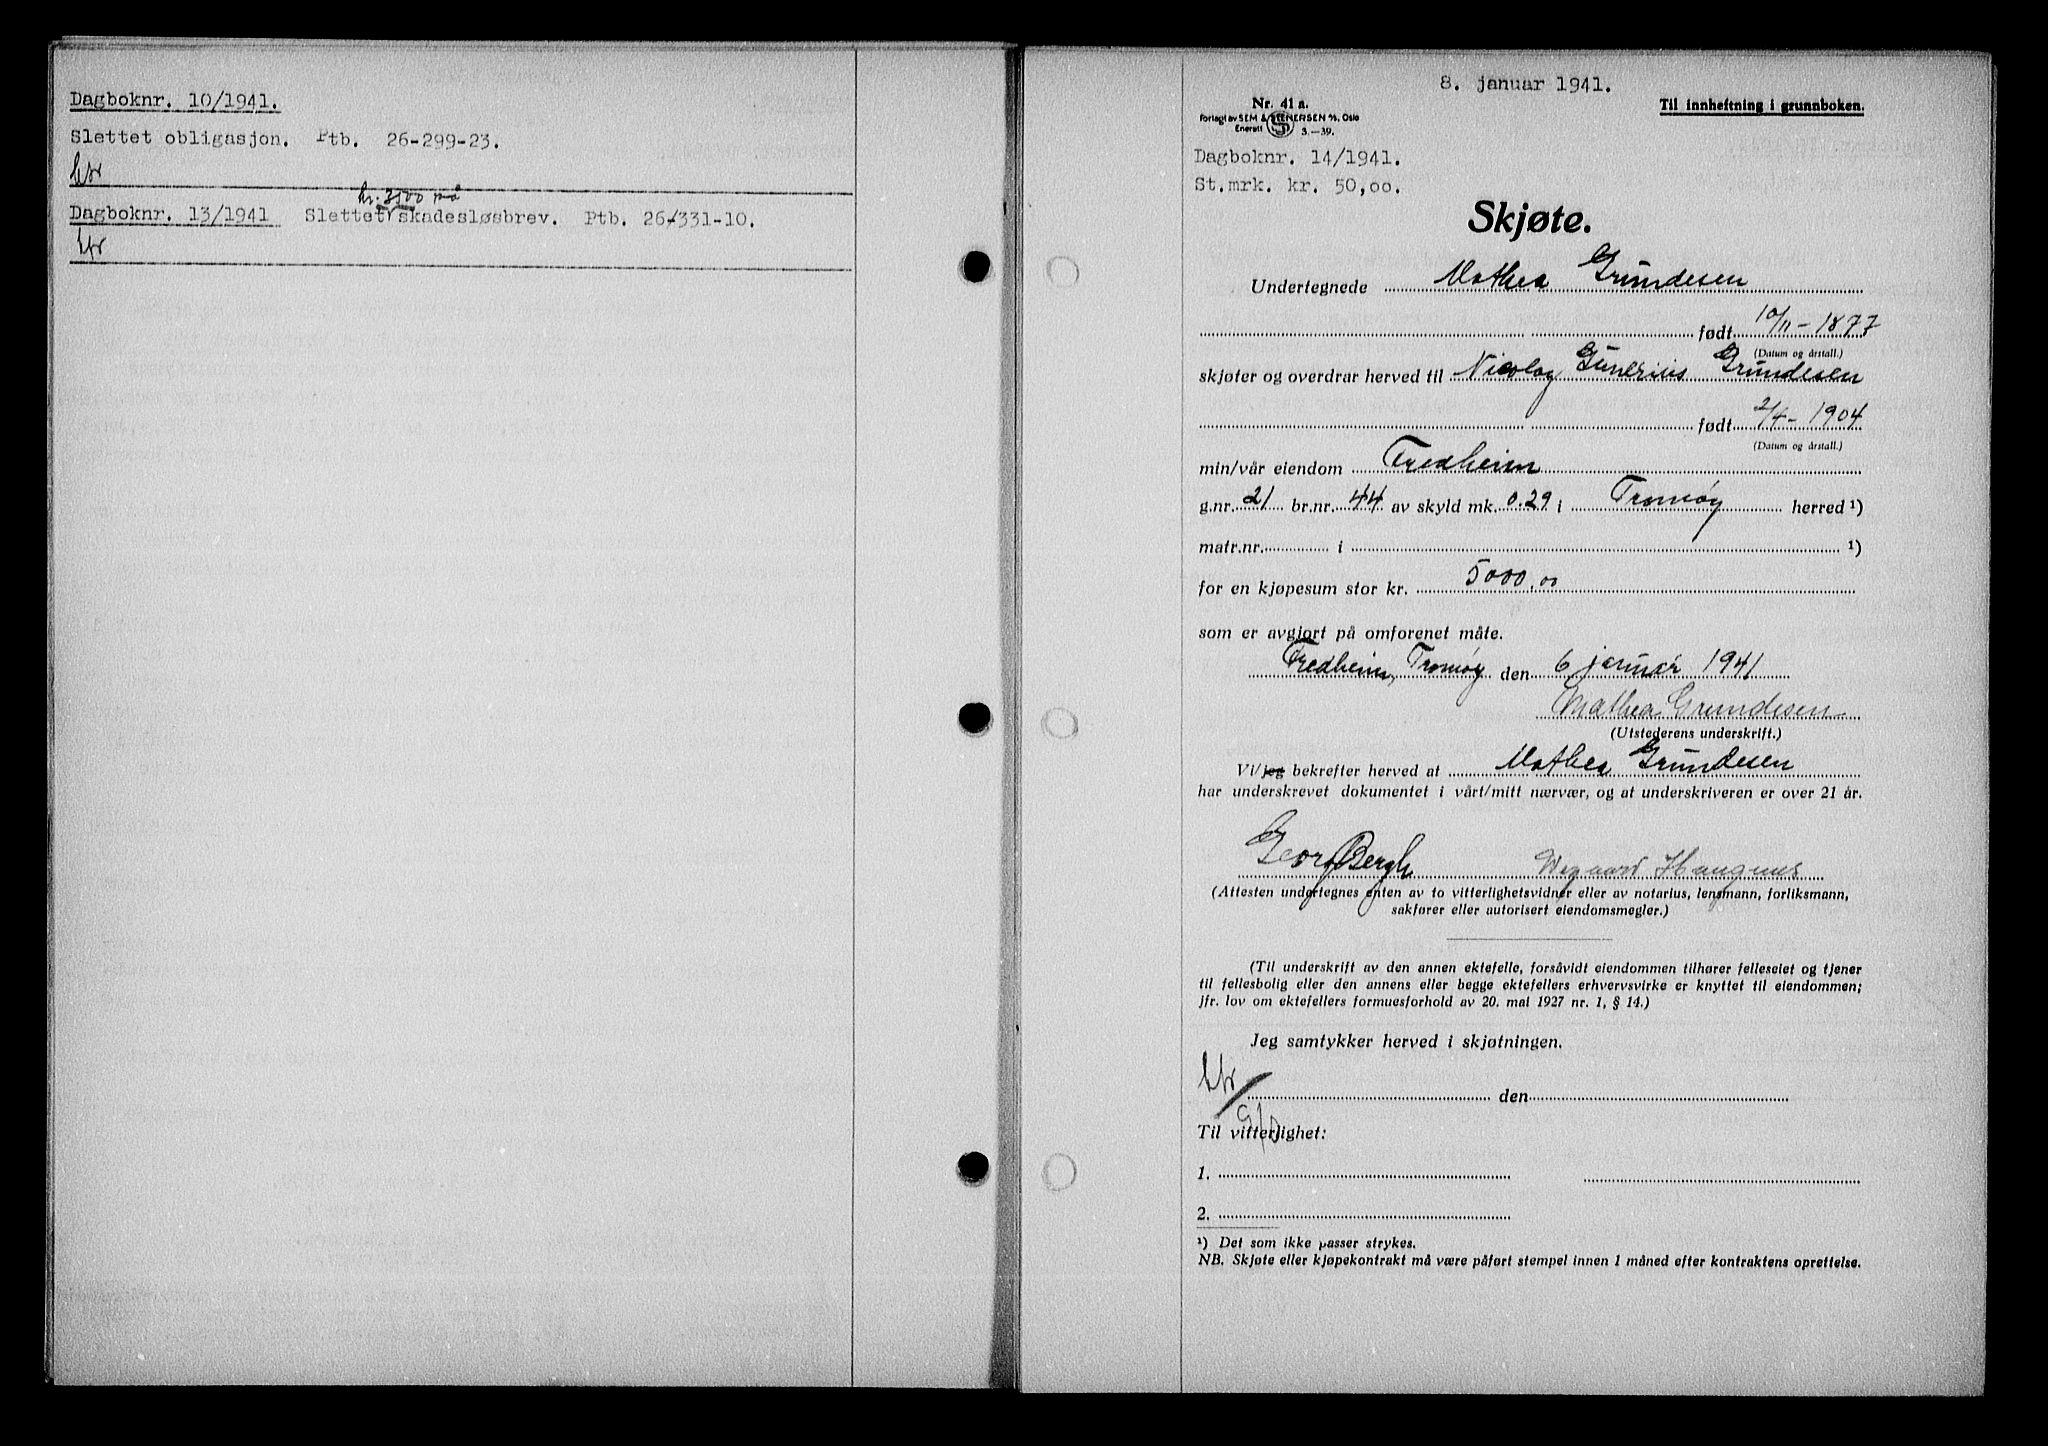 Dagboknr. 10/1941.
Slettet obligasjon. Ptb. 26-299-23.
kr. 3500 må
Dagboknr. 13/1941 Slettet skadesløsbrev. Ptb. 26-331-10.
8. januar 1941.
Nr. 41 a.
Forlagt av SEM & STENERSEN A/S, Oslo
Enerett 3.-39.
Til innheftning i grunnboken.
Dagboknr. 14/1941.
St.mrk. kr. 50,00.
Skjøte.
Undertegnede Mathea Grundesen
født 10/11-1877
(Datum og årstall.)
skjøter og overdrar herved til Nicolay Gunerius Grundesen
født 2/4-1904
(Datum og årstall.)
min/vår eiendom Fredheim
g.nr. 21 br.nr. 44 av skyld mk. 0.29 i Tromøy herred ¹)
matr.nr. i ¹)
for en kjøpesum stor kr. 5000,00
som er avgjort på omforenet måte.
Fredheim, Tromøy den 6 januar 1941
Mathea Grundesen
(Utstederens underskrift.)
Vi/jeg bekrefter herved at Mathea Grundesen
har underskrevet dokumentet i vårt/mitt nærvær, og at underskriveren er over 21 år.
Georg Bergh
(Attesten undertegnes enten av to vitterlighetsvidner eller av notarius, lensmann, forliksmann,
sakfører eller autorisert eiendomsmegler.)
(Til underskrift av den annen ektefelle, forsåvidt eiendommen tilhører felleseiet og tjener
til fellesbolig eller den annens eller begge ektefellers erhvervsvirke er knyttet til eiendommen;
jfr. lov om ektefellers formuesforhold av 20. mai 1927 nr. 1, § 14.)
Jeg samtykker herved i skjøtningen.
den
Til vitterlighet:
1.
2.
¹) Det som ikke passer strykes.
NB. Skjøte eller kjøpekontrakt må være påført stempel innen 1 måned efter kontraktens oprettelse.